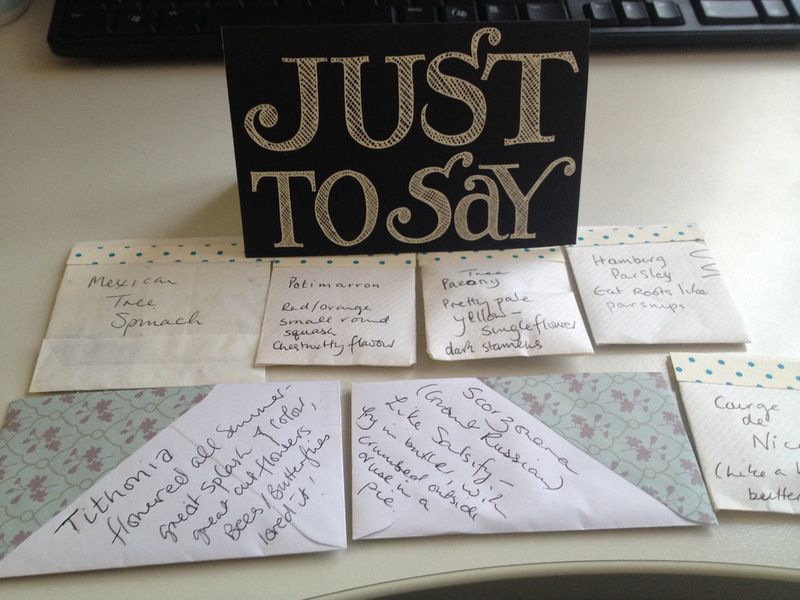 JUST
TO SaY
Mexican
Tree
Spinach
Potimarron
Red/orange
small round
squash
Chestnutty flavour
Tree
Paeony
Pretty pale
yellow -
single flower
dark stamens
Hamburg
Parsley
Eat Roots like
parsnips
Tithonia
flowered all summer -
great splash of colour,
great cut flowers
Bees/Butterflies
loved it!
Scorzonera
(Grand Russian)
Like Salsify -
fry in butter, with
crumbed outside
or use in a
pie.
Courge
de
Nic
(Like a
butter